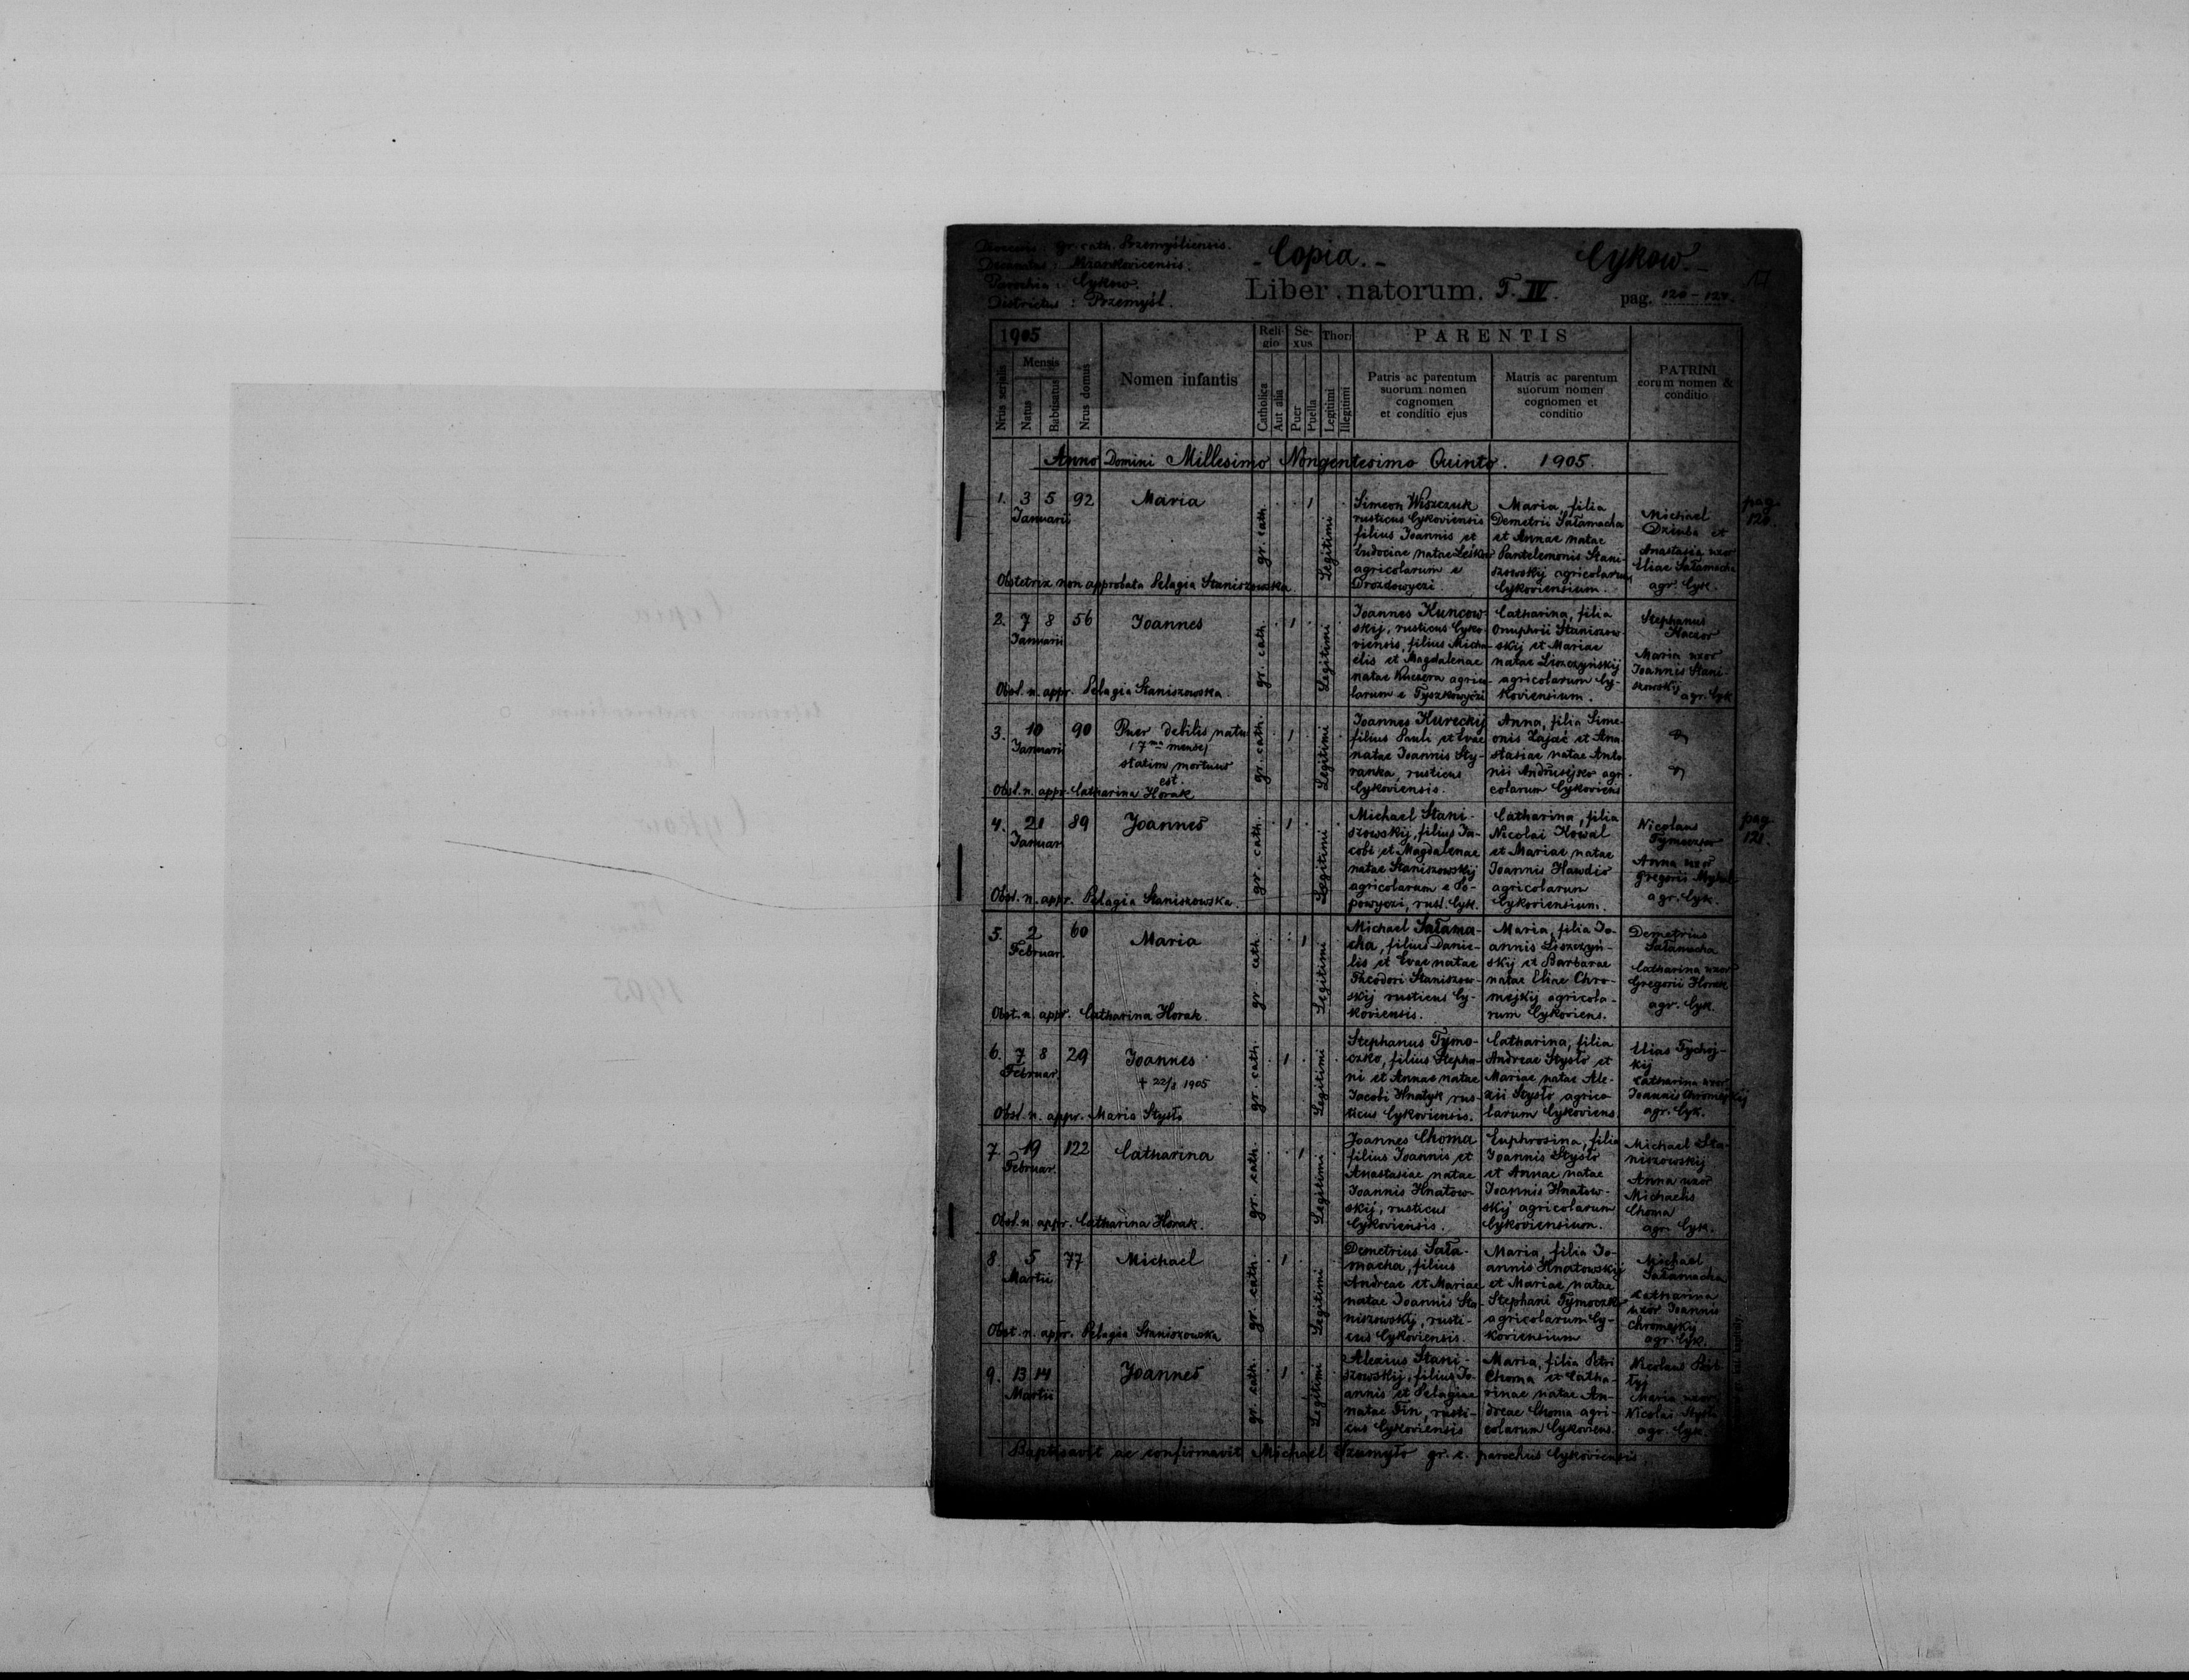 Dioecesis: gr. cath. Przemyśliensis.
Decanatus:
Parochia: Cykow.
Districtus: Przemyśl.
- Copia. -
Cykow. -
Liber natorum. T. IV.
pag. 120 -
1905
Nrus serialis
Mensis
Natus
Babtisatus
Nrus domus
Nomen infantis
Religio
Catholica
Aut alia
Sexus
Puer
Puella
Thori
Legitimi
Illegitimi
PARENTIS
Patris ac parentum
suorum nomen
cognomen
et conditio ejus
Matris ac parentum
suorum nomen
cognomen et
conditio
PATRINI
eorum nomen &
conditio
Anno Domini Millesimo Nongentesimo Quinto. 1905.
1. 3 5 92 Maria
Januarii
gr. cath.
Legitimi
Simeon Wiszczuk
rusticus Cykoviensis
filius Joannis et
Eudociae natae
agricolarum e
Drozdowyczi.
Maria, filia
Demetrii Sałamacha
et Annae natae
Pantelemonis Stani-
szowskij agricolarum
Cykoviensium.
Michael
Dziuba et
Anastasia uxor
Eliae Sałamacha
agr. Cyk.
pag.
120.
Obstetrix non approbata Pelagia Staniszowska.
2. 7 8 56 Joannes
Januarii
gr. cath.
Legitimi
Joannes Kuncow-
skij, rusticus Cyko-
viensis, filius Micha-
elis et Magdalenae
natae Kuczera agrico-
larum e Tyszkowyczi
Catharina, filia
Onuphrii Staniszow-
skij et Mariae
natae Liszczyńskij
agricolarum Cy-
koviensium.
Stephanus
Kaczor
Maria uxor
Joannis Stani-
szowskij
agr. Cyk
Obst. n. appr. Pelagia Staniszowska.
3. 10 90 Puer debilis natu
Januarii
(7mo mense)
statim mortuus
est.
gr. cath.
Legitimi
Joannes Kureckij
filius Pauli et Evae
natae Joannis Sty-
ranka, rusticus
Cykoviensis.
Anna, filia Sime-
onis Zając et Ana
stasiae natae Anto
nii Andrusejko agr-
colarum Cykoviens
Obst. n. appr. Catharina Horak
4. 21 89 Joannes
Januar.
gr. cath.
Legitimi
Michael Stani-
szowskij, filius Ja-
cobi et Magdalenae
natae Staniszowskij
agricolarum e Po-
powyczi, rust. Cyk.
Catharina, filia
Nicolai Kowal
et Mariae natae
Joannis Hawdio
agricolarum
Cykoviensium.
Nicolaus
Tymoczko
Anna uxor
Gregorii
agr. Cyk.
pag.
121.
Obst. n. appr. Pelagia Staniszowska.
5. 2 60 Maria
Februar.
gr. cath.
Legitimi
Michael Sałama-
cha, filius Danie-
lis et Evae natae
Theodori Staniszow-
skij rusticus Cy-
koviensis.
Maria, filia Jo-
annis Liszczyń-
skij et Barbarae
natae Eliae Chro-
mejkij agricola-
rum Cykoviens.
Demetrius
Sałamacha
Catharina uxor
Gregorii Horak
agr. Cyk.
Obst. n. appr. Catharina Horak.
6. 7 8 29 Joannes
Februar.
† 22/8 1905
gr. cath.
Legitimi
Stephanus Tymo-
czko, filius Stepha-
ni et Annae natae
Jacobi Hnatyk rus-
ticus Cykoviensis.
Catharina, filia
Andreae Stysło et
Mariae natae Ale-
xii Stysło agrico-
larum Cykoviens.
Elias Tychoj-
kij
Catharina uxor
Joannis Chromejkij
agr. Cyk.
Obst. n. appr. Maria Stysło
7. 19 122 Catharina
Februar.
gr. cath.
Legitimi
Joannes Choma
filius Joannis et
Anastasiae natae
Joannis Hnatow-
skij, rusticus
Cykoviensis.
Euphrosina, filia
Joannis Stysło
et Annae natae
Joannis Hnatow-
skij agricolarum
Cykoviensium.
Michael Sta-
niszowskij
Anna uxor
Michaelis
Choma
agr. Cyk.
Obst. n. appr. Catharina Horak.
8. 5 77 Michael
Martii
gr. cath.
Legitimi
Demetrius Sała-
macha, filius
Andreae et Mariae
natae Joannis Sta-
niszowskij, rusti-
cus Cykoviensis.
Maria, filia Jo-
annis Hnatowskij
et Mariae natae
Stephani Tymoczko
agricolarum Cy-
koviensium
Michael
Sałamacha
Catharina
uxor Joannis
Chromejkij
agr. Cyk.
Obst. n. appr. Pelagia Staniszowska
9. 13 14 Joannes
Martii
gr. cath.
Legitimi
Alexius Stani-
szowskij, filius Jo-
annis et Pelagiae
natae Fin, rusti-
cus Cykoviensis
Maria, filia Petri
Choma et Catha-
rinae natae An-
dreae Choma agri-
colarum Cykoviens.
Nicolaus
Maria uxor
Nicolai Stysło
agr. Cyk.
Baptisavit ac confirmavit Michael Szumyło gr. c. parochus Cykoviensis.